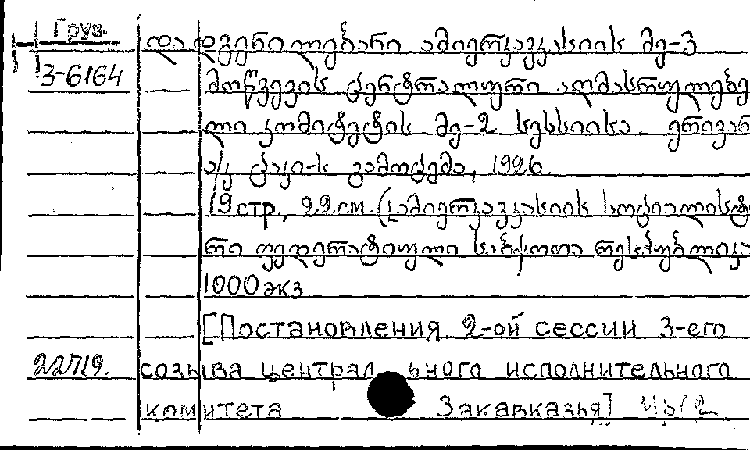 Груз.
3-6164
დადგენილებანი ამიერკავკასიის მე-3
მოწვევის ცენტრალური აღმასრულებე
ლი კომიტეტის მე-2 სესიისა. ერივან
ა/კ ცაკი-ს გამოცემა, 1926.
19 стр., 22 см. (ამიერკავკასიის სოციალისტ
რი ფედერატიული საბჭოთა რესპუბლიკა
1000 экз
[Постановления 2-ой сессии 3-его
22719. созыва централ ьного исполнительного
комитета Закавказья]